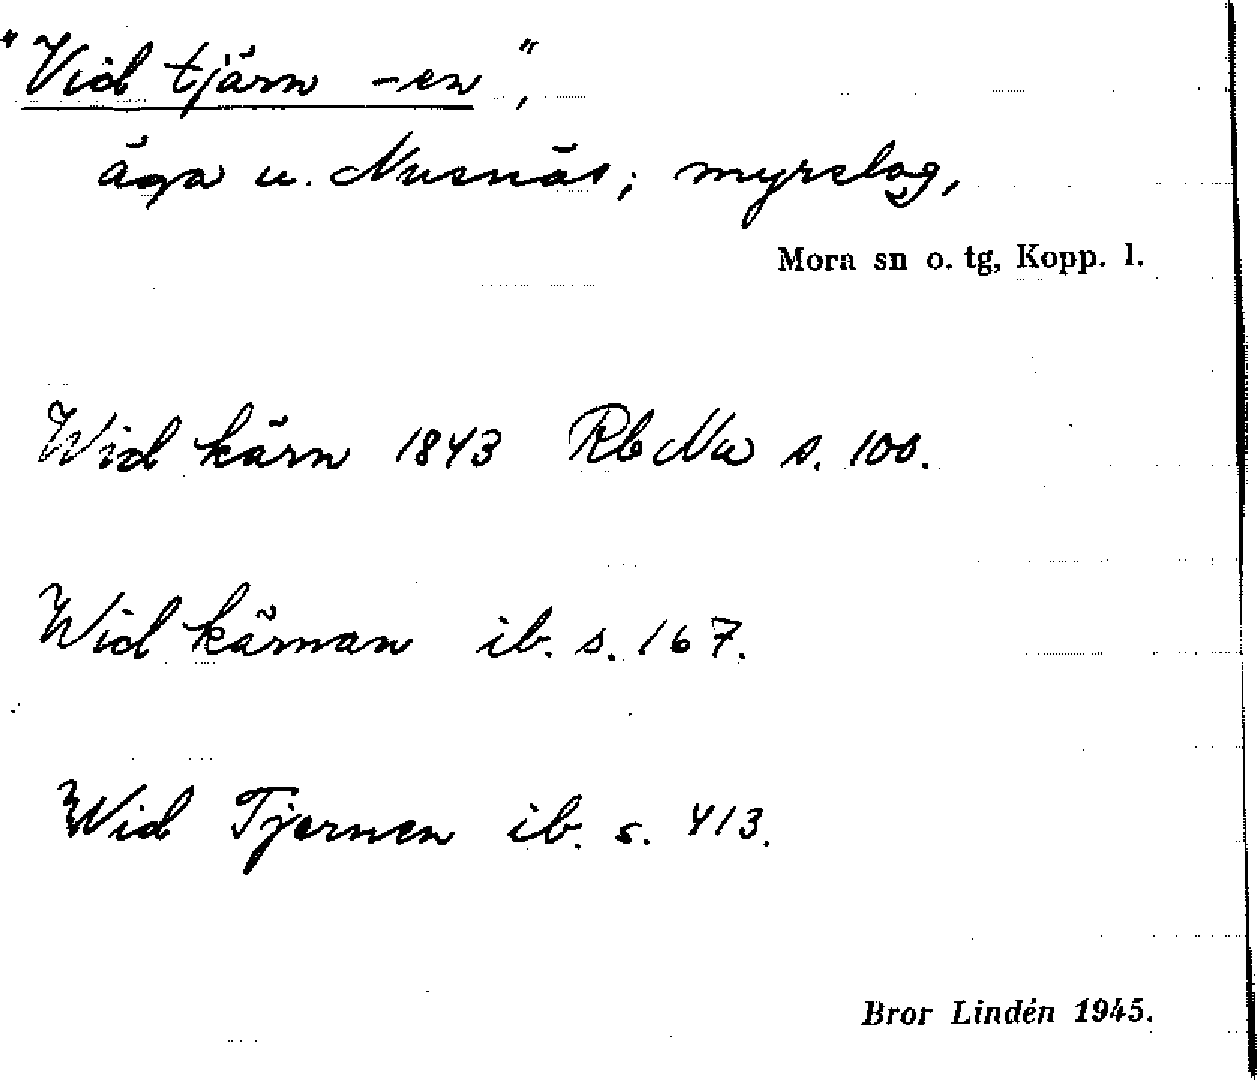 "Vid tjärn -en",
äga u. Nusnäs; myrslog,
Mora sn o. tg, Kopp. l.
Wid kärn 1843 Rb Nu s. 100.
Wid kärnan ib. s. 167.
Wid Tjernen ib. s. 413.
Bror Lindén 1945.